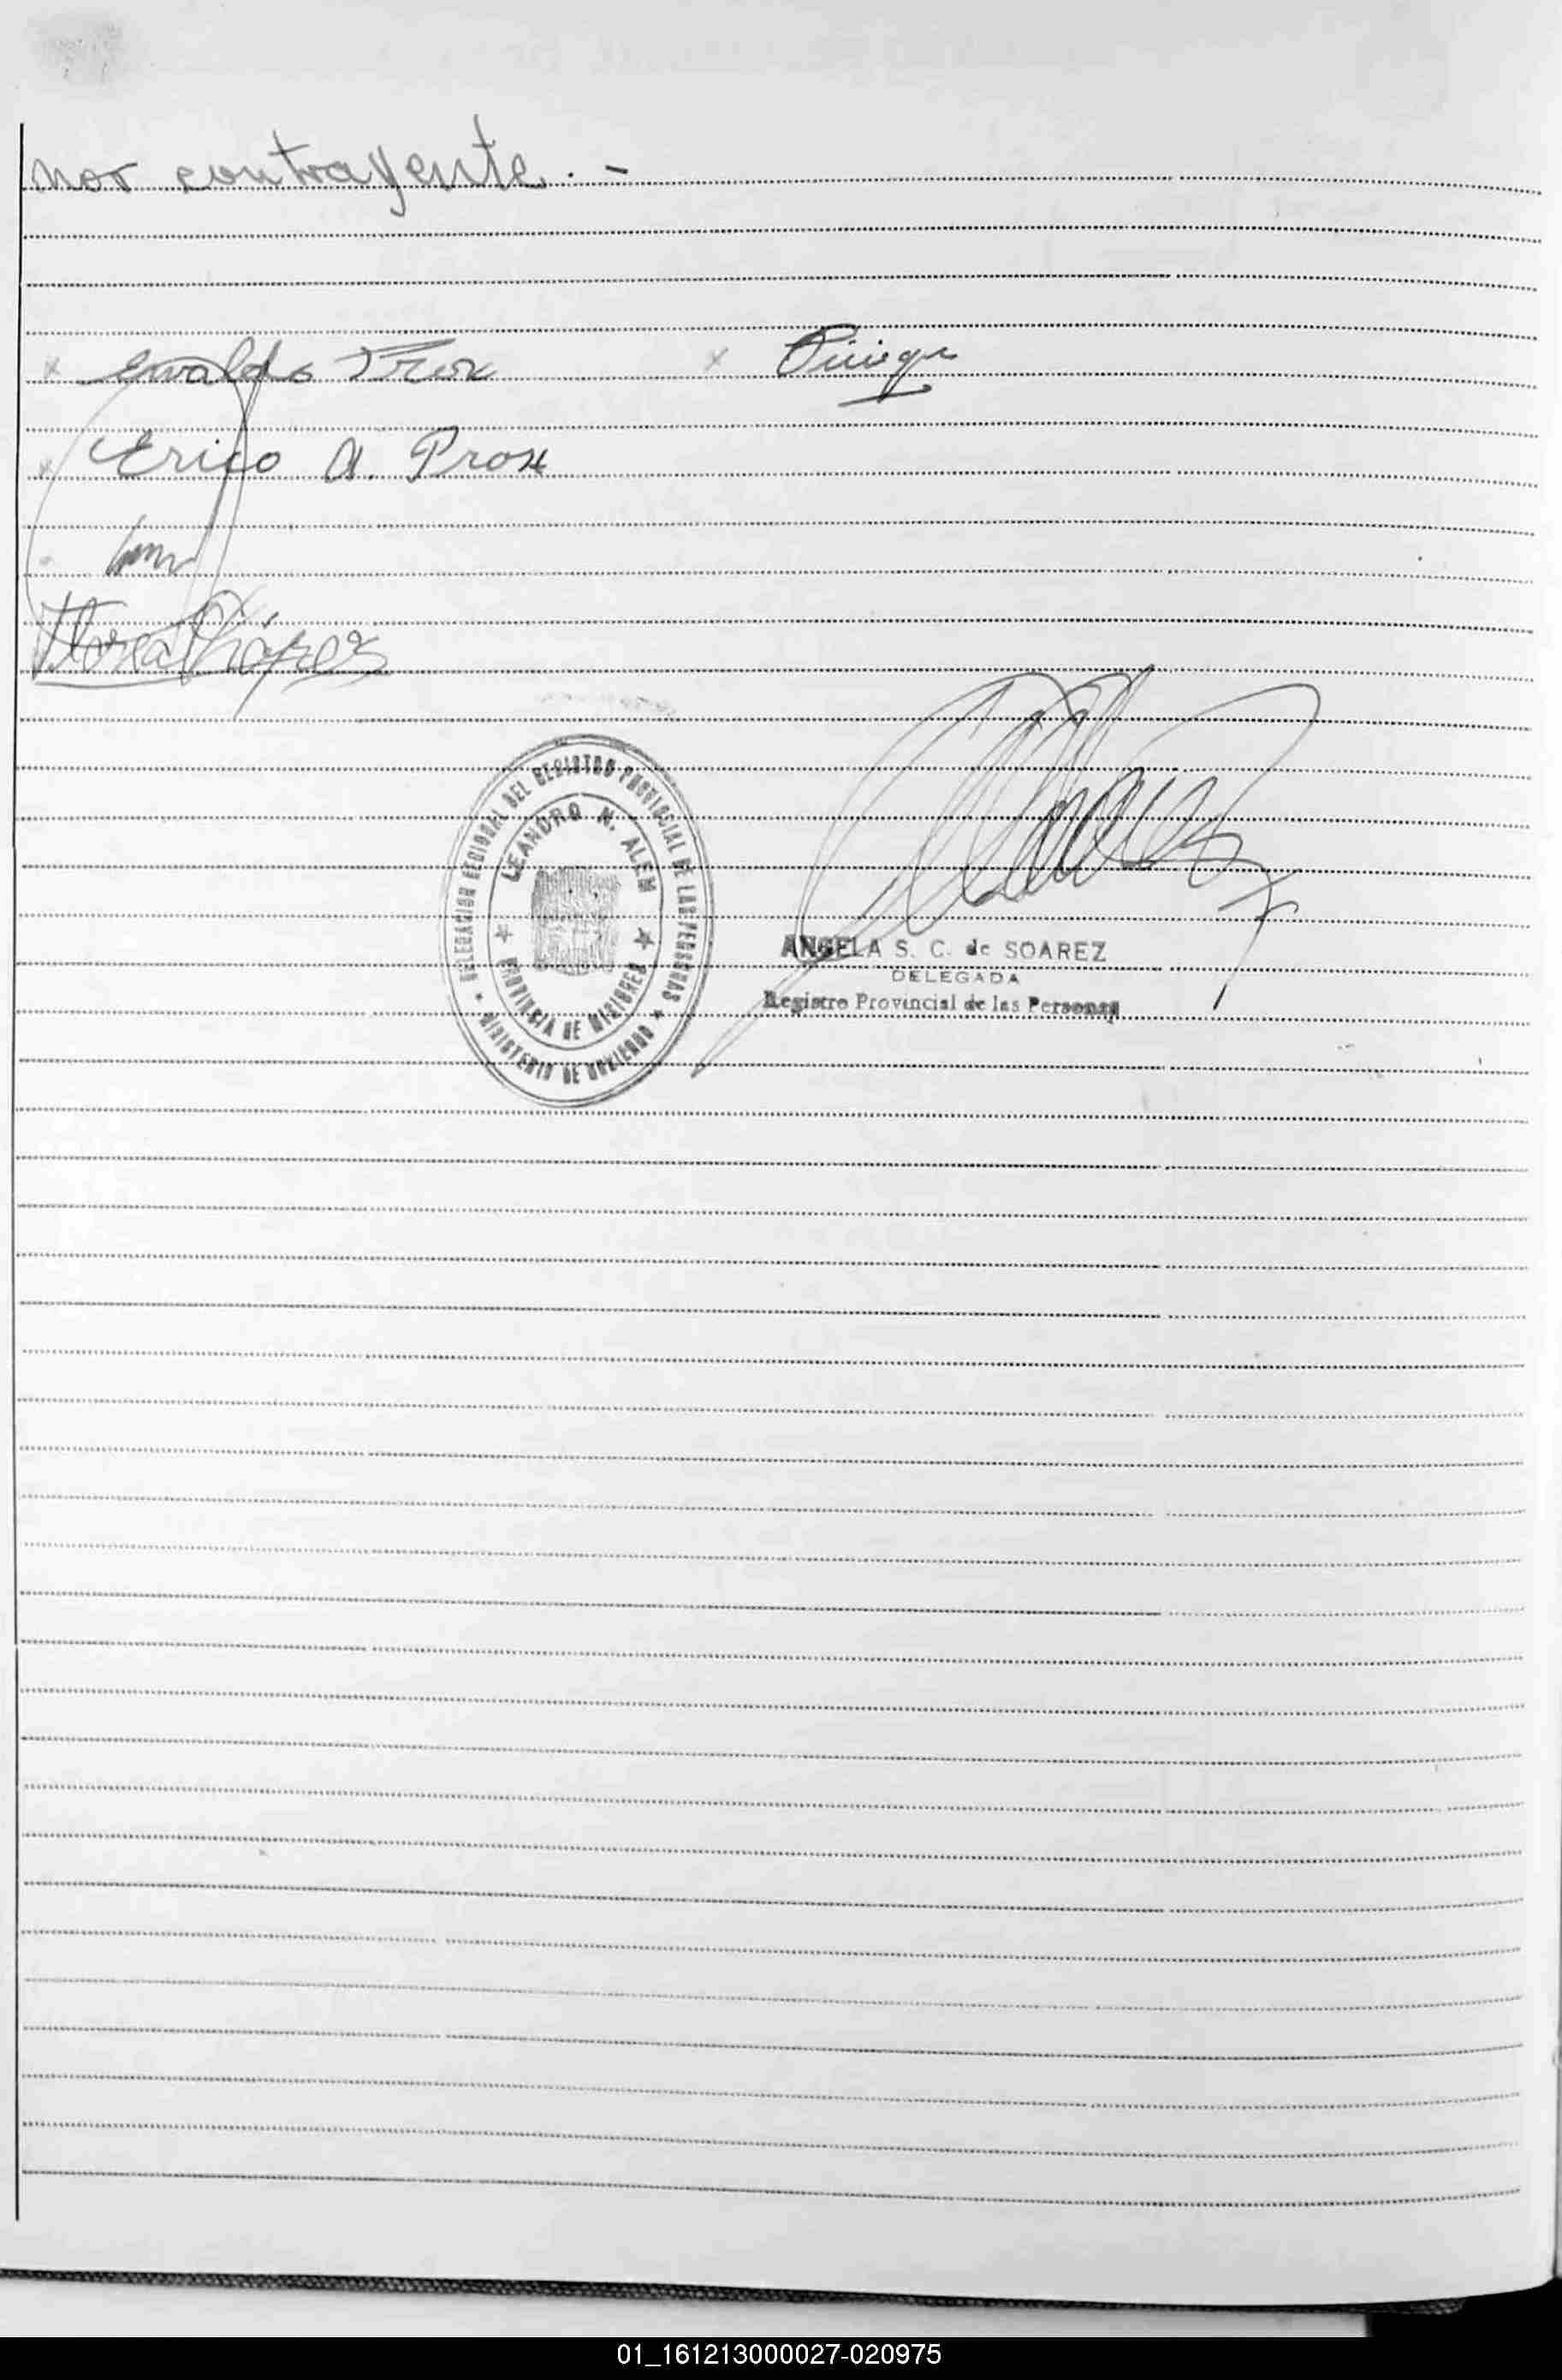 nor contrayente. -
Ewaldo Prox
Erico A. Prox
DELEGACION REGIONAL DEL REGISTRO PROVINCIAL DE LAS PERSONAS
LEANDRO N. ALEM
PROVINCIA DE MISIONES
MINISTERIO DE GOBIERNO
ANGELA S. C. de SOAREZ
DELEGADA
Registro Provincial de las Personas
01_161213000027-020975